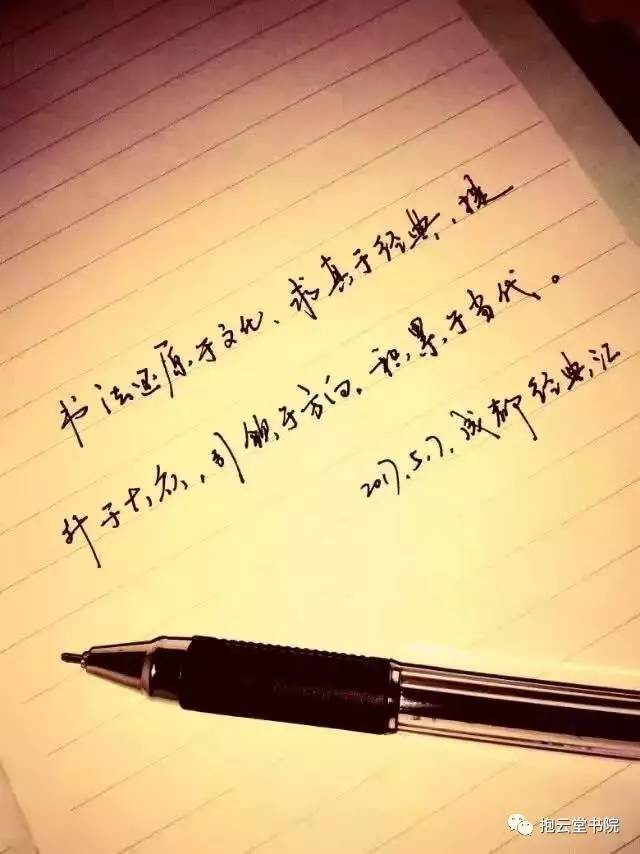 书法还原于文化、求真于经典、提
升于大众、引领于方向、积累于当代。
2017.5.7.成都经典汇
抱云堂书院